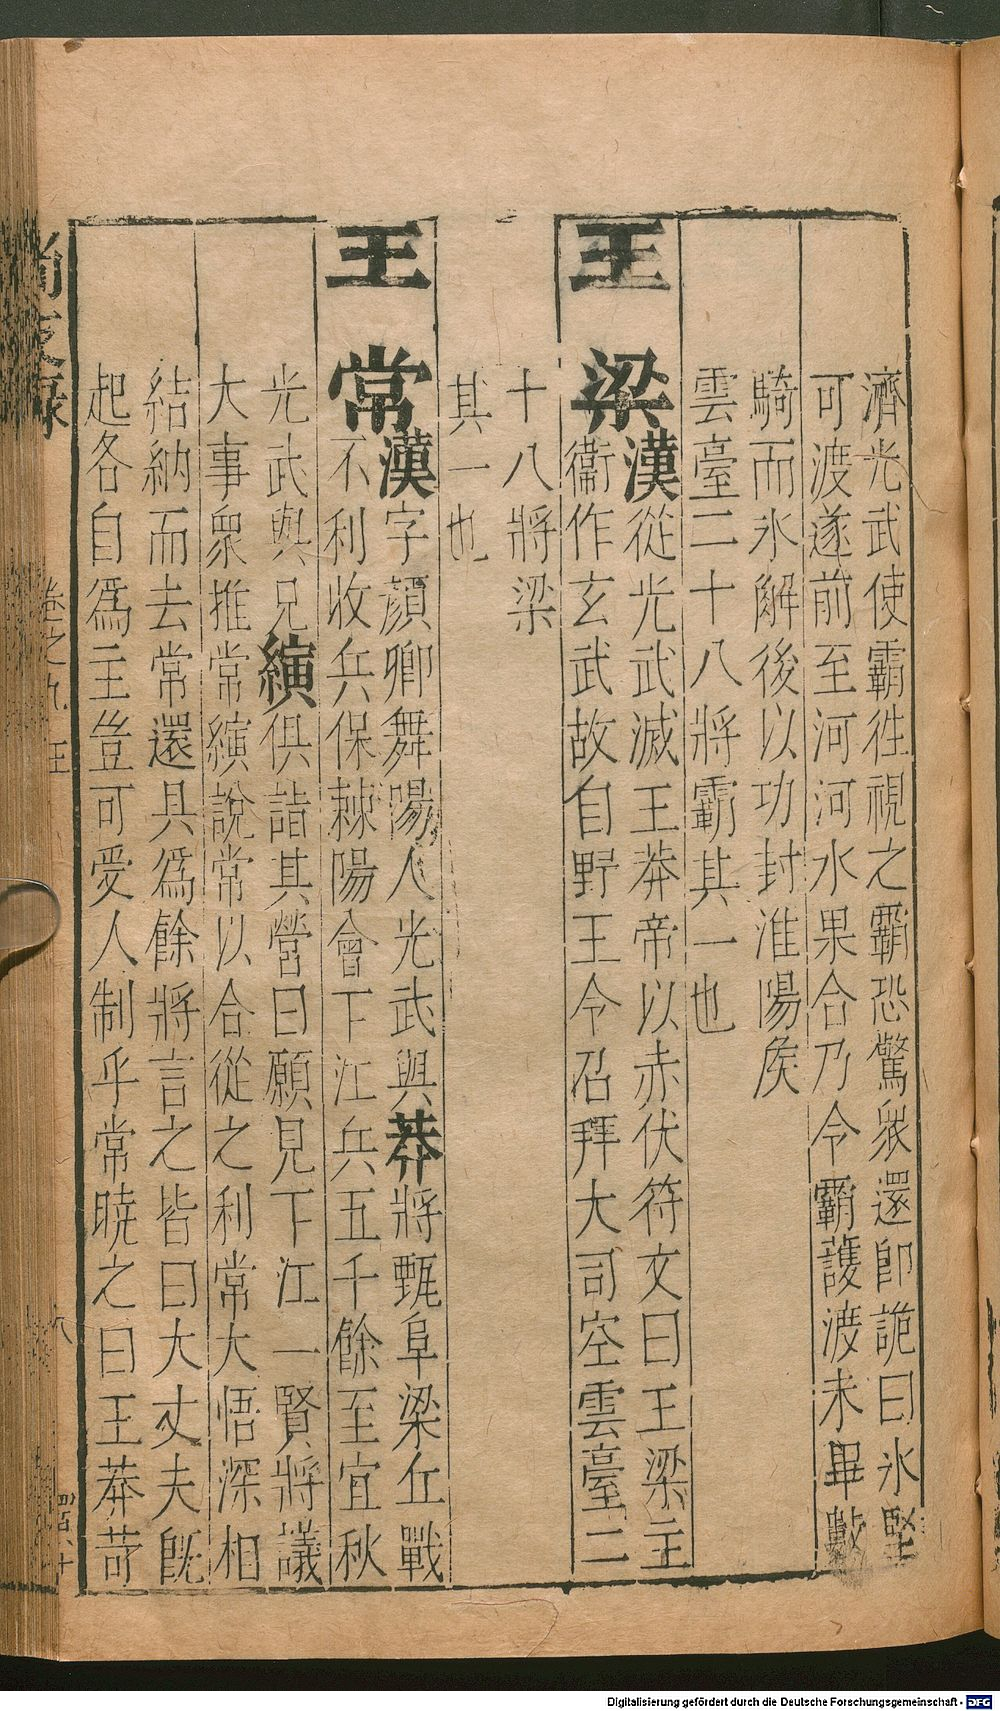 濟光武使霸徃視之霸恐驚衆還即詭曰氷堅
可渡遂前至河河水果合乃令霸護渡未畢數
騎而氷解後以功封淮陽矦
雲臺二十八將霸其一也
王梁漢從光武滅王莽帝以赤伏符文曰王梁主
衞作玄武故自野王令召拜大司空雲臺二
十八將梁
其一也
王常漢字顏卿舞陽人光武與莽將甄阜梁丘戰
不利收兵保棘陽會下江兵五千餘至宜秋
光武與兄縯俱詣其營曰願見下江一賢將議
大事衆推常縯說常以合從之利常大悟深相
結納而去常還具爲餘將言之皆曰大丈夫旣
起各自爲主豈可受人制乎常曉之曰王莽苛
尚友錄 卷之九 王 八
Digitalisierung gefördert durch die Deutsche Forschungsgemeinschaft - DFG